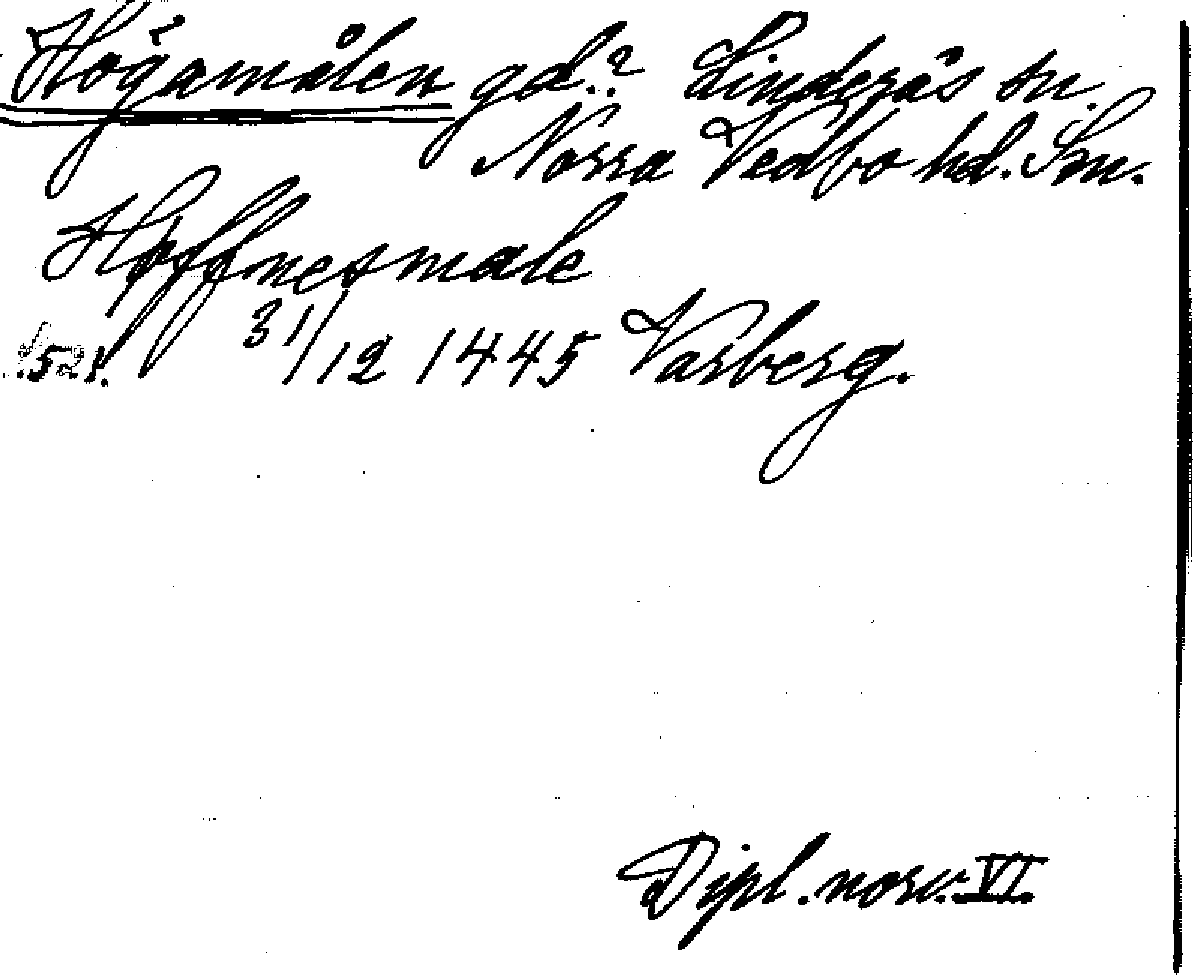 Högamålen gd.? Linderås sn.
Norra Vedbo hd. Sm.
Hoffnesmale
s. 521. 31/12 1445 Varberg.
Dipl. norv. VI.